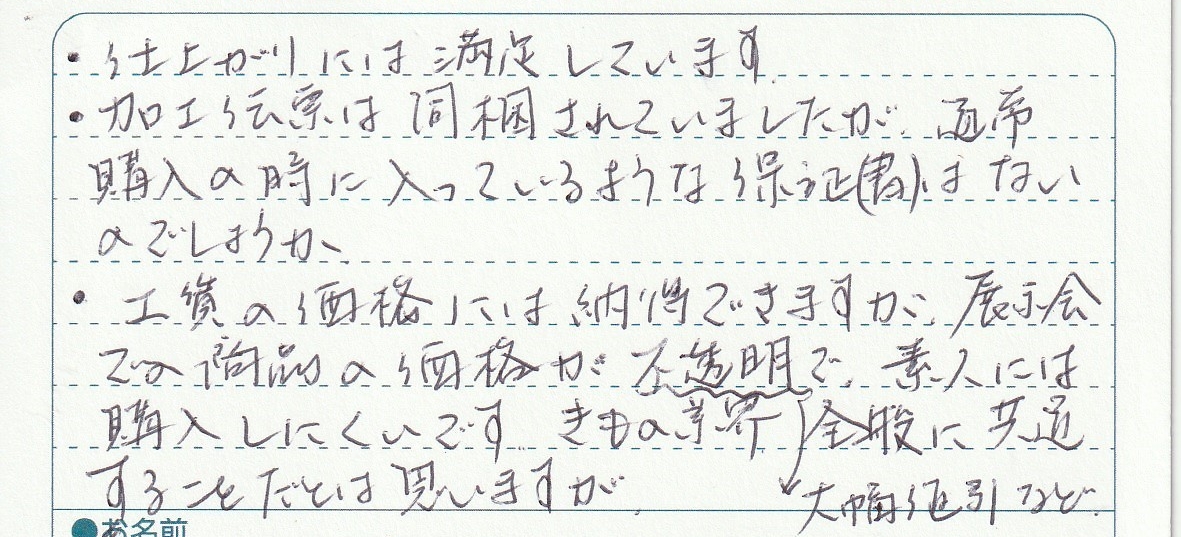 ・仕上がりには満足しています。
・加工伝票は同梱されていましたが、通常
購入の時に入っているような保証(書)はない
のでしょうか、
・工賃の価格には納得できますが、展示会
での商品の価格が不透明で、素人には
購入しにくいです。きもの業界全般に共通
することだとは思いますが、
大幅値引など。
●お名前